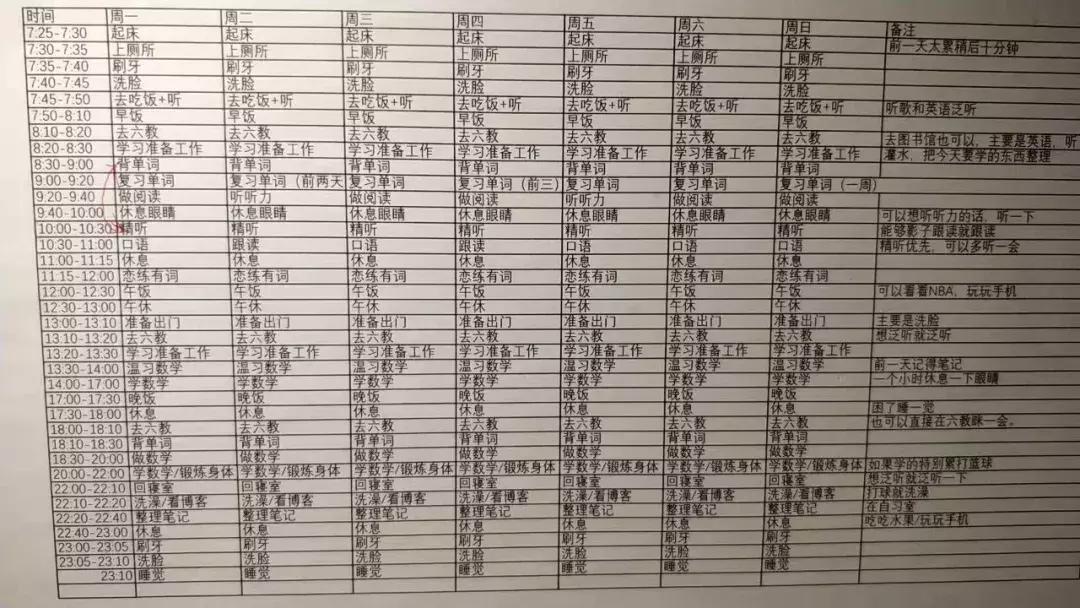 时间 周一 周二 周三 周四 周五 周六 周日 备注
7:25-7.30 起床 起床 起床 起床 起床 起床 起床 前一天太累稍后十分钟
7:30-7:35 上厕所 上厕所 上厕所 上厕所 上厕所 上厕所 上厕所
7:35-7:40 刷牙 刷牙 刷牙 刷牙 刷牙 刷牙 刷牙
7:40-7:45 洗脸 洗脸 洗脸 洗脸 洗脸 洗脸 洗脸
7:45-7:50 去吃饭+听 去吃饭+听 去吃饭+听 去吃饭+听 去吃饭+听 去吃饭+听 去吃饭+听 听歌和英语泛听
7:50-8:10 早饭 早饭 早饭 早饭 早饭 早饭 早饭
8:10-8:20 去六教 去六教 去六教 去六教 去六教 去六教 去六教 去图书馆也可以，主要是英语，听
8:20-8:30 学习准备工作 学习准备工作 学习准备工作 学习准备工作 学习准备工作 学习准备工作 学习准备工作 灌水，把今天要学的东西整理
8:30-9:00 背单词 背单词 背单词 背单词 背单词 背单词 背单词
9:00-9:20 复习单词 复习单词（前两天 复习单词 复习单词（前三） 复习单词 复习单词 复习单词（一周）
9:20-9.40 做阅读 听听力 做阅读 做阅读 听听力 做阅读 做阅读
9:40-10:00 休息眼睛 休息眼睛 休息眼睛 休息眼睛 休息眼睛 休息眼睛 休息眼睛 可以想听听力的话，听一下
10:00-10:30 精听 精听 精听 精听 精听 精听 精听 能够影子跟读就跟读
10:30-11:00 口语 跟读 口语 跟读 口语 口语 口语 精听优先，可以多听一会
11:00-11:15 休息 休息 休息 休息 休息 休息 休息
11:15-12:00 恋练有词 恋练有词 恋练有词 恋练有词 恋练有词 恋练有词 恋练有词
12:00-12:30 午饭 午饭 午饭 午饭 午饭 午饭 午饭 可以看看NBA，玩玩手机
12:30-13:00 午休 午休 午休 午休 午休 午休 午休
13:00-13:10 准备出门 准备出门 准备出门 准备出门 准备出门 准备出门 准备出门 主要是洗脸
13:10-13:20 去六教 去六教 去六教 去六教 去六教 去六教 去六教 想泛听就泛听
13:20-13:30 学习准备工作 学习准备工作 学习准备工作 学习准备工作 学习准备工作 学习准备工作 学习准备工作
13:30-14:00 温习数学 温习数学 温习数学 温习数学 温习数学 温习数学 温习数学 前一天记得笔记
14:00-17:00 学数学 学数学 学数学 学数学 学数学 学数学 学数学 一个小时休息一下眼睛
17:00-17:30 晚饭 晚饭 晚饭 晚饭 晚饭 晚饭 晚饭
17:30-18:00 休息 休息 休息 休息 休息 休息 休息 困了睡一觉
18:00-18:10 去六教 去六教 去六教 去六教 去六教 去六教 去六教 也可以直接在六教眯一会。
18:10-18:30 背单词 背单词 背单词 背单词 背单词 背单词 背单词
18:30-20:00 做数学 做数学 做数学 做数学 做数学 做数学 做数学
20:00-22:00 学数学/锻炼身体 学数学/锻炼身体 学数学/锻炼身体 学数学/锻炼身体 学数学/锻炼身体 学数学/锻炼身体 学数学/锻炼身体 如果学的特别累打篮球
22:00-22:10 回寝室 回寝室 回寝室 回寝室 回寝室 回寝室 回寝室 想泛听就泛听一下
22:10-22:20 洗澡/看博客 洗澡/看博客 洗澡/看博客 洗澡/看博客 洗澡/看博客 洗澡/看博客 洗澡/看博客 打球就洗澡
22:20-22:40 整理笔记 整理笔记 整理笔记 整理笔记 整理笔记 整理笔记 整理笔记 在自习室
22:40-23:00 休息 休息 休息 休息 休息 休息 休息 吃吃水果/玩玩手机
23:00-23:05 刷牙 刷牙 刷牙 刷牙 刷牙 刷牙 刷牙
23:05-23:10 洗脸 洗脸 洗脸 洗脸 洗脸 洗脸 洗脸
23:10 睡觉 睡觉 睡觉 睡觉 睡觉 睡觉 睡觉